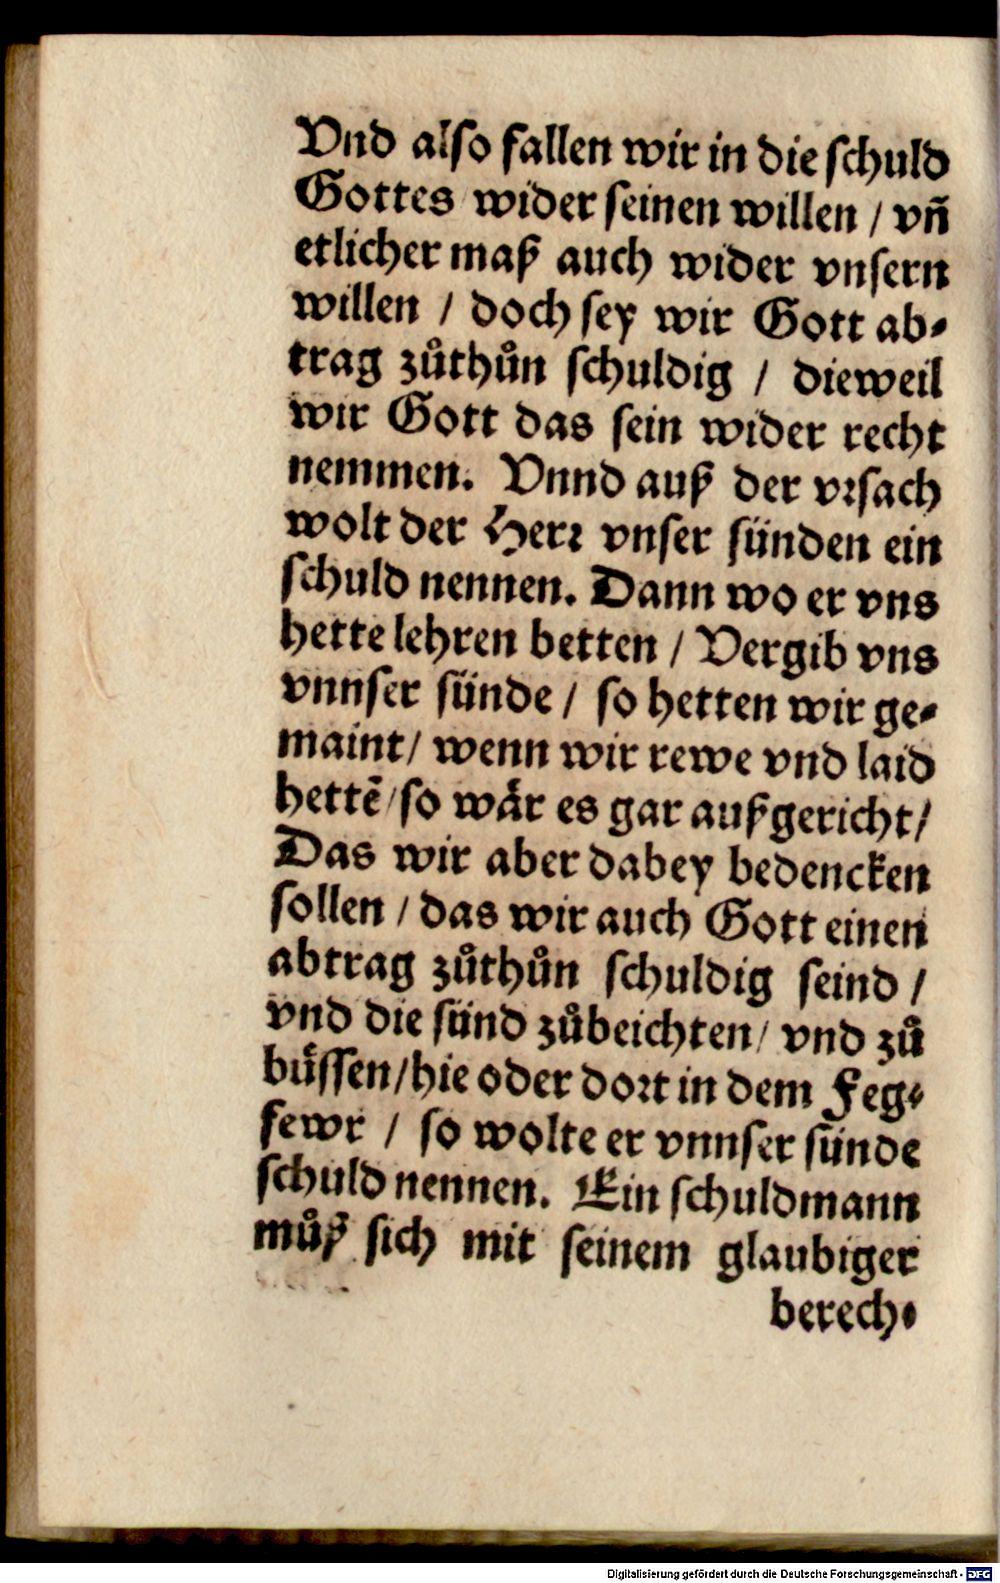 Vnd also fallen wir in die schuld
Gottes wider seinen willen / vñ
etlicher maß auch wider vnsern
willen / doch sey wir Gott ab-
trag zůthůn schuldig / dieweil
wir Gott das sein wider recht
nemmen. Vnnd auß der vrsach
wolt der Herr vnser sünden ein
schuld nennen. Dann wo er vns
hette lehren betten / Vergib vns
vnnser sünde / so hetten wir ge-
maint / wenn wir rewe vnd laid
hettē / so wär es gar außgericht /
Das wir aber dabey bedencken
sollen / das wir auch Gott einen
abtrag zůthůn schuldig seind /
vnd die sünd zůbeichten / vnd zů
büssen / hie oder dort in dem Feg-
fewr / so wolte er vnnser sünde
schuld nennen. Ein schuldmann
můß sich mit seinem glaubiger
berech-
Digitalisierung gefördert durch die Deutsche Forschungsgemeinschaft - DFG